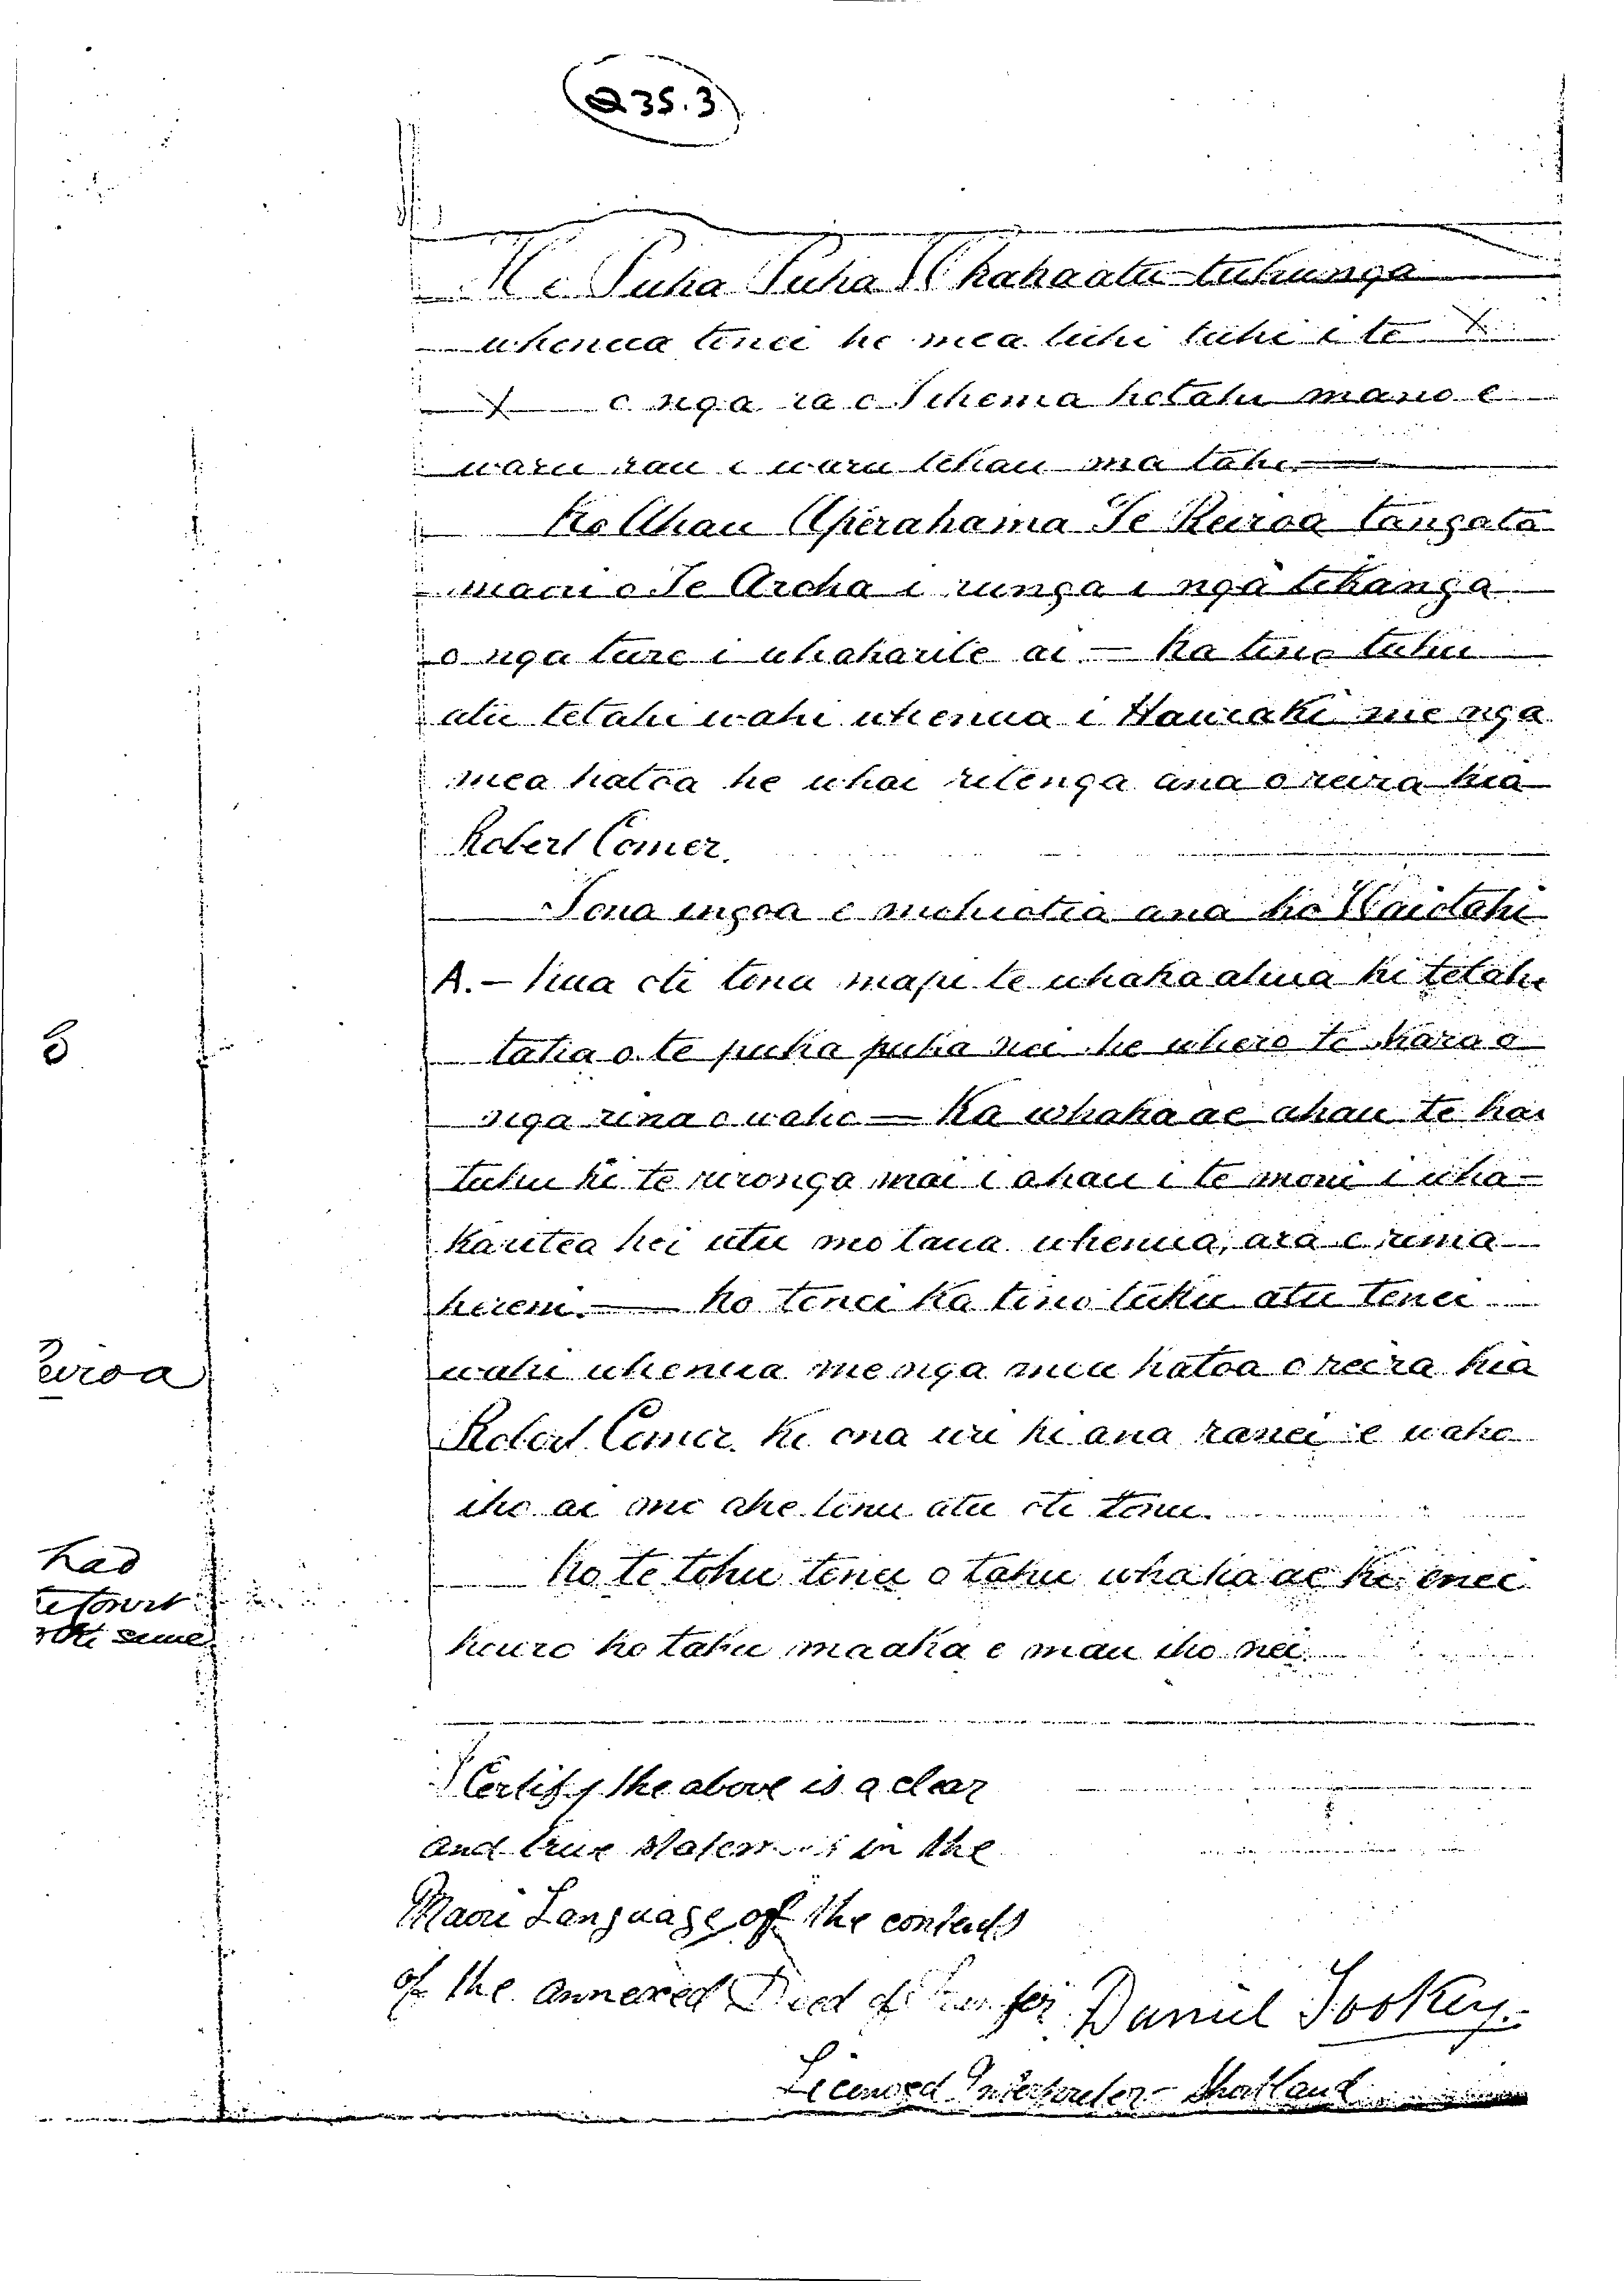 235.3
He Puka Puka Whakaatu-tukunga
whenua tenei he mea tuhi tuhi i te X
X o nga ra o Tihema kotahi mano e
waru rau e waru tekau ma tahi.
Ko Ahau Aperahama Te Reiroa tangata
maori o Te Aroha i runga i nga tikanga
o nga ture i whakarite ai — Ka tino tuku
atu tetahi wahi whenua i Hauraki me nga
mea katoa he whai ritenga ana o reira kia
Robert Comer.
Tona ingoa e mohiotia ana ko Waiotahi
A. — Kua oti tona mapi te whakaahua ki tetahi
taha o te puka puka nei he whero te kara o
nga raina o waho — Ka whakaae ahau te kai
tuku ki te rironga mai i ahau i te moni i wha-
karitea hei utu mo taua whenua, ara e rima
hereni. — Ko tenei Ka tino tuku atu tenei
wahi whenua me nga mea katoa o reira kia
Robert Comer. ki ona uri ki ana ranei e waho
iho ai me ake tonu atu oti tonu.
Ko te tohu tenei o taku whakaae ki enei
korero ko taku maaka e mau iho nei.
B
eiroa
had
same
I Certify the above is a clear
and true statement in the
Maori Language of the contents
of the annexed Deed of Transfer. Daniel Tookey.
Licensed Interpreter – Shortland